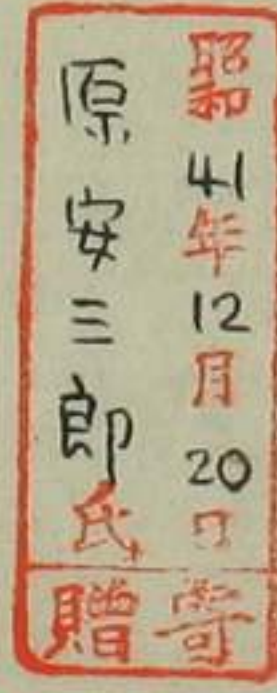 昭和41年12月20日
原安三郎氏
寄贈